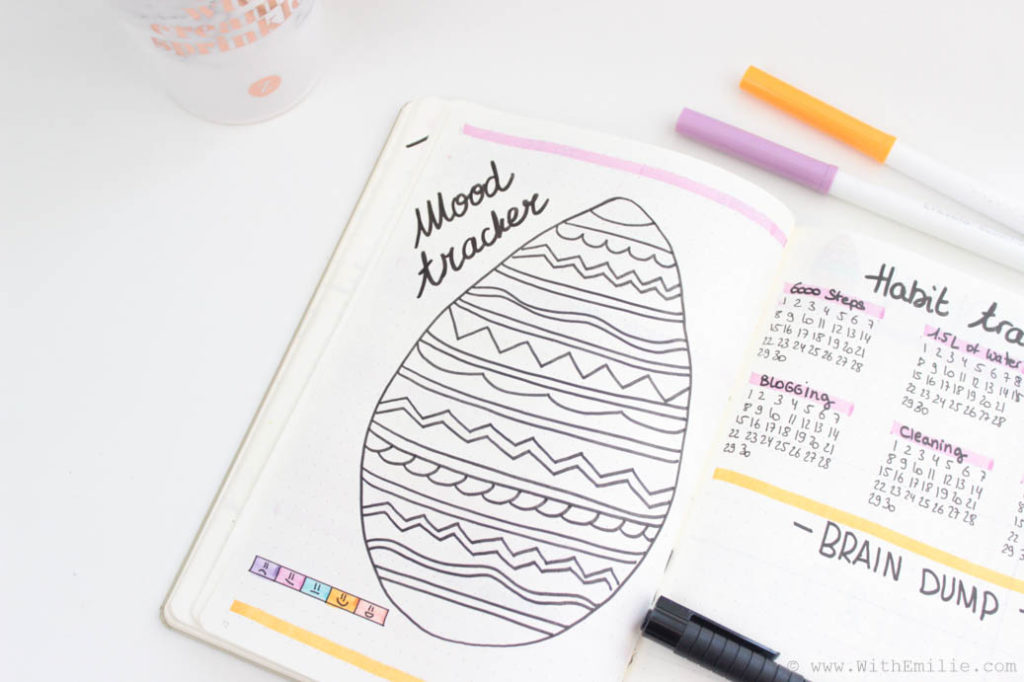 cream
sprinkle
Mood
tracker
Habit tra
6000 Steps
1 2 3 4 5 6 7
8 9 10 11 12 13 14
15 16 17 18 19 20 21
22 23 24 25 26 27 28
29 30
1.5L of water
1 2 3 4 5 6 7
8 9 10 11 12 13 14
15 16 17 18 19 20 21
22 23 24 25 26 27 28
29 30
BLOGGING
1 2 3 4 5 6 7
8 9 10 11 12 13 14
15 16 17 18 19 20 21
22 23 24 25 26 27 28
29 30
Cleaning
1 2 3 4 5 6 7
8 9 10 11 12 13 14
15 16 17 18 19 20 21
22 23 24 25 26 27 28
29 30
- BRAIN DUMP -
© www.WithEmilie.com